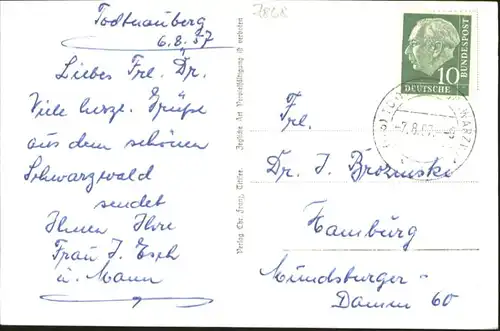 Todtnauberg
6.8.57
Liebes Frl. Dr.
Viele herzl. Grüße
aus dem schönen
Schwarzwald
sendet
Ihnen Ihre
Frau J. Esch
u. Mann
7868
Jegliche Art Vervielfältigung ist verboten
Verlag Chr. Franz, Titisee.
10
DEUTSCHE
BUNDESPOST
-7.8.57.-6
Frl.
Dr. J. Brozinski
Hamburg
Mundsburger-
Damm 60